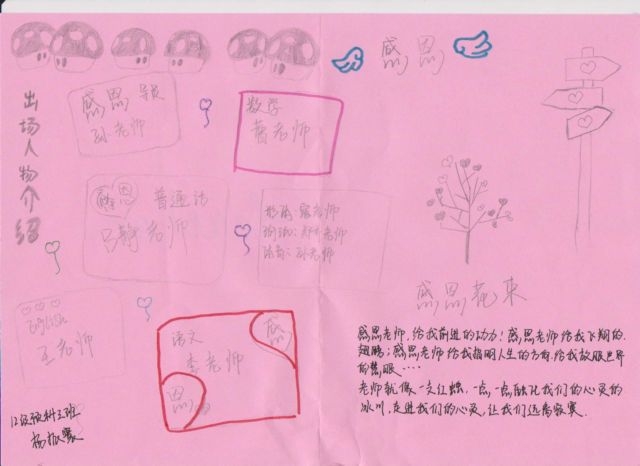 感恩
出场人物介绍
感恩 导员
孙老师
数学
曹老师
感恩 普通话
马静老师
形体:寇老师
瑜珈:郑老师
体育:孙老师
English
王老师
语文
李老师
感
恩
感恩老师
感恩老师,给我前进的动力!感恩老师给我飞翔的
翅膀;感恩老师给我指明人生的方向,给我放眼世界
的慧眼····
老师就像一支红烛,一点,一点融化我们的心灵的
冰川,走进我们的心灵,让我们远离寂寞.
12级预科三班
杨振寰